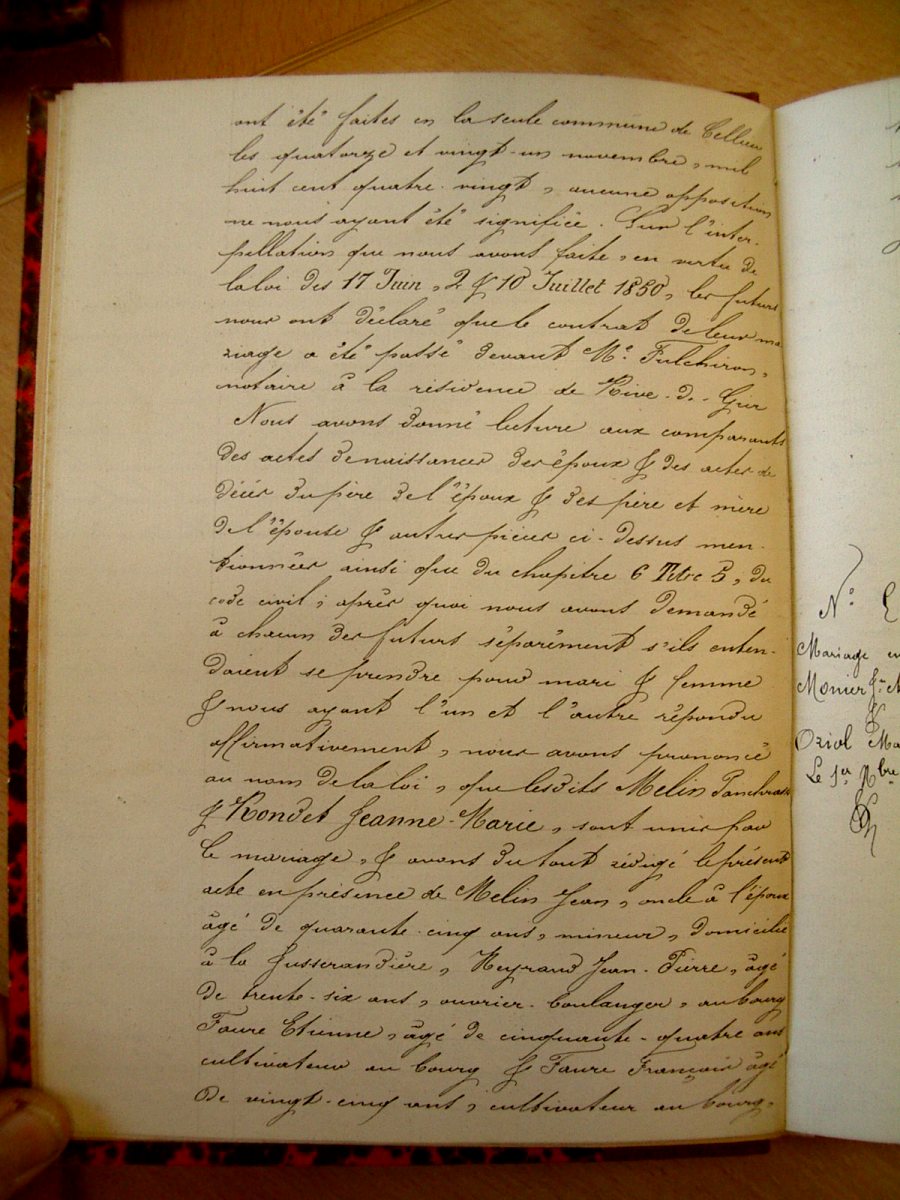 ont été faites en la seule commune de Cellieu
les quatorze et vingt-un novembre, mil
huit cent quatre-vingt, aucune opposition
ne nous ayant été signifiée. Sur l'inter-
pellation que nous avons faite, en vertu de
la loi des 17 Juin, 2 & 10 Juillet 1850, les futurs
nous ont déclaré que le contrat de leur ma
riage a été passé devant Me. Fulchiron,
notaire à la résidence de Rive-de-Gier
Nous avons donné lecture aux comparants
des actes de naissances des époux & des actes de
décès du père de l'époux & des père et mère
de l'épouse & autres pièces ci-dessus men-
tionnées ainsi que du chapitre 6 Titre 5, du
code civil; après quoi nous avons demandé
à chacun des futurs séparément s'ils enten-
daient se prendre pour mari & femme
& nous ayant l'un et l'autre répondu
affirmativement, nous avons prononcé
au nom de la loi, que lesdits Melin Pancrass
& Rondet Jeanne-Marie, sont unis par
le mariage, & avons du tout rédigé le présent
acte en présence de Melin Jean, oncle à l'époux
âgé de quarante-cinq ans, mineur, domicilié
à la Jusserandière, Reyraud Jean-Pierre, âgé
de trente-six ans, ouvrier-boulanger, au bourg
Faure Etienne, âgé de cinquante-quatre ans
cultivateur au bourg & Faure François âgé
de vingt-cinq ans, cultivateur au bourg,
N°
Mariage en
Monier
&
Oriol Ma
Le 1er Xbre